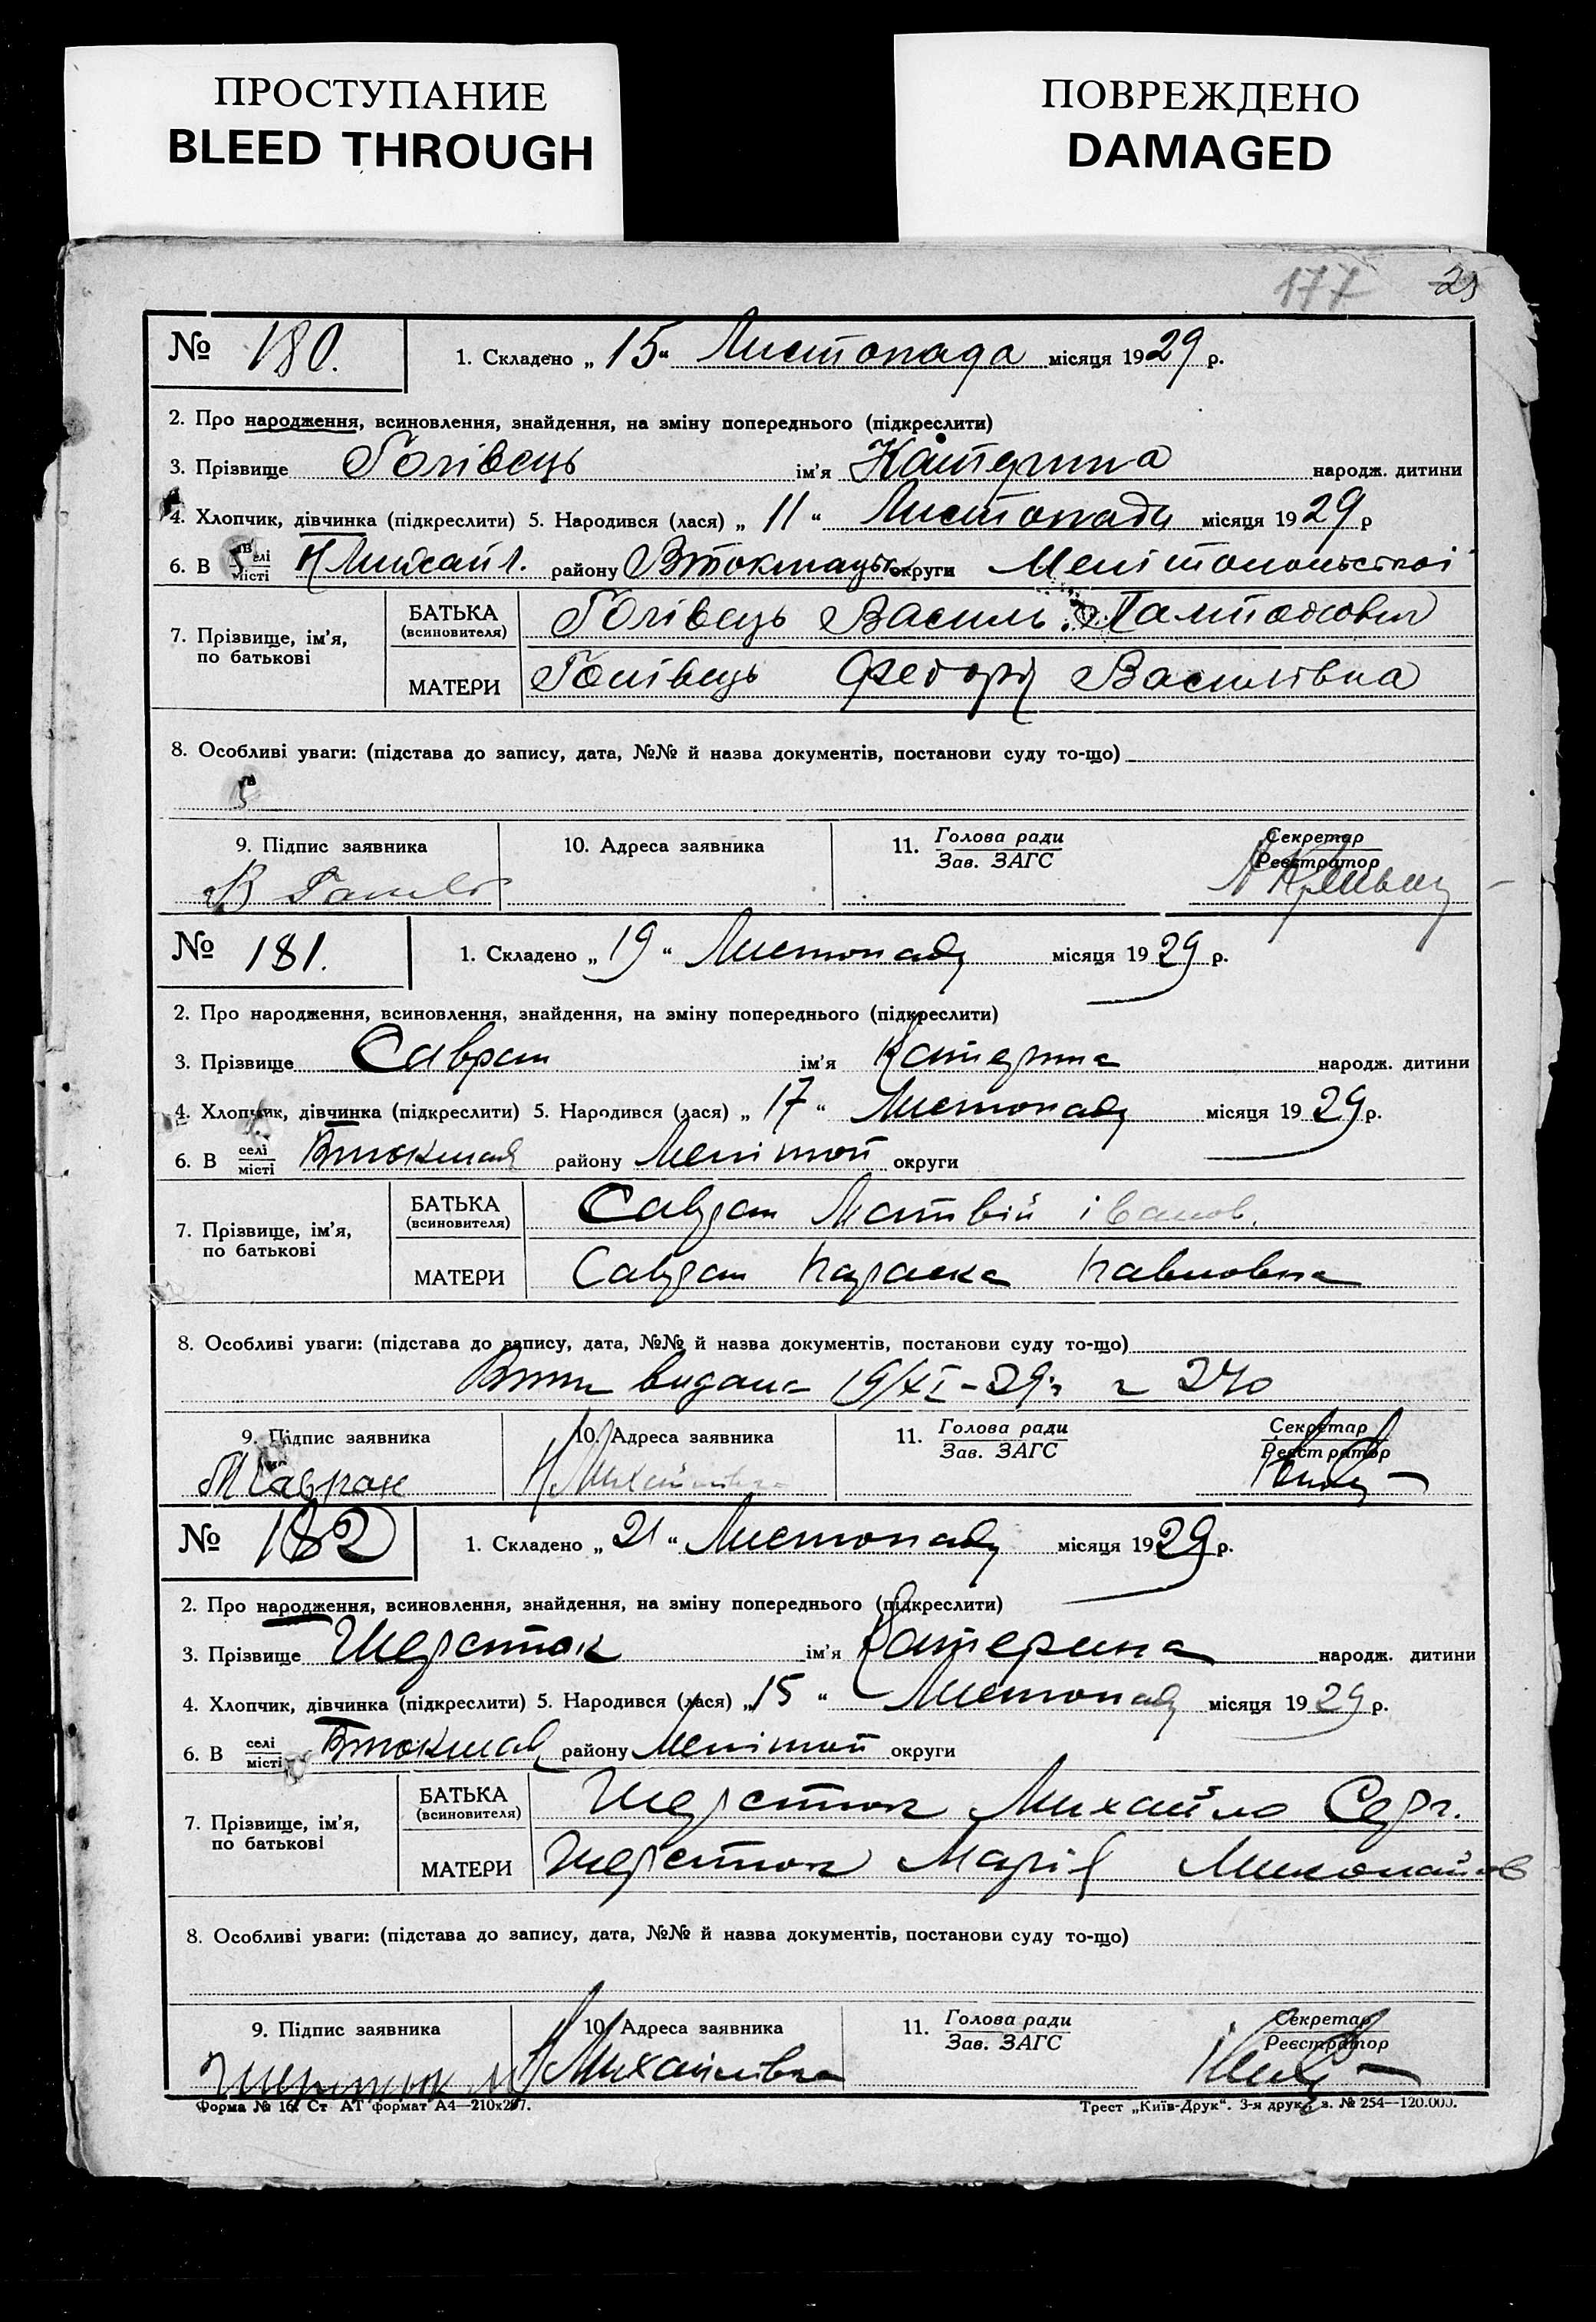 ПРОСТУПАНИЕ
BLEED THROUGH
ПОВРЕЖДЕНО
DAMAGED
177 25
№ 180. 1. Складено „ 15 “ Листопада місяця 1929 р.
2. Про народження, всиновлення, знайдення, на зміну попереднього (підкреслити)
3. Прізвище Голівець ім'я Катерина народж. дитини
4. Хлопчик, дівчинка (підкреслити) 5. Народився (лася) „ 11 “ Листопада місяця 1929 р
6. В селі місті Н Михайл. району Втокмацьк округи Мелітопольської
7. Прізвище, ім'я, по батькові БАТЬКА (всиновителя) Голівець Василь
МАТЕРИ Голівець Федора Василівна
8. Особливі уваги: (підстава до запису, дата, №№ й назва документів, постанови суду то-що)
9. Підпис заявника 10. Адреса заявника 11. Голова ради Зав. ЗАГС Секретар Реєстратор
№ 181. 1. Складено „ 19 “ Листопада місяця 1929 р.
2. Про народження, всиновлення, знайдення, на зміну попереднього (підкреслити)
3. Прізвище Савран ім'я Катерина народж. дитини
4. Хлопчик, дівчинка (підкреслити) 5. Народився (лася) „ 17 “ Листопада місяця 1929 р.
6. В селі місті Втокмак району Меліттоп округи
7. Прізвище, ім'я, по батькові БАТЬКА (всиновителя) Савран Матвій іванов.
МАТЕРИ Савран Параска Павловна
8. Особливі уваги: (підстава до запису, дата, №№ й назва документів, постанови суду то-що)
видана 19/XI-29 240
9. Підпис заявника 10. Адреса заявника 11. Голова ради Зав. ЗАГС Секретар Реєстратор
М Савран Н Михайлівка
№ 182 1. Складено „ 21 “ Листопада місяця 1929 р.
2. Про народження, всиновлення, знайдення, на зміну попереднього (підкреслити)
3. Прізвище Шерстюк ім'я Катерина народж. дитини
4. Хлопчик, дівчинка (підкреслити) 5. Народився (лася) „ 15 “ Листопада місяця 1929 р.
6. В селі місті Втокмак району Меліттоп округи
7. Прізвище, ім'я, по батькові БАТЬКА (всиновителя) Шерстюк Михайло Серг.
МАТЕРИ Шерстюк Марія Миколаїв
8. Особливі уваги: (підстава до запису, дата, №№ й назва документів, постанови суду то-що)
9. Підпис заявника 10. Адреса заявника 11. Голова ради Зав. ЗАГС Секретар Реєстратор
Шерстюк М Н Михайлівка
Форма № 16. Ст АТ формат А4—210х297. Трест „Київ-Друк“. 3-я друк., з. № 254—120.000.